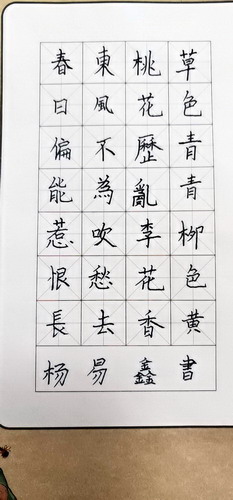 草色青青柳色黄
桃花歷亂李花香
東風不為吹愁去
春日偏能惹恨長
杨易鑫書